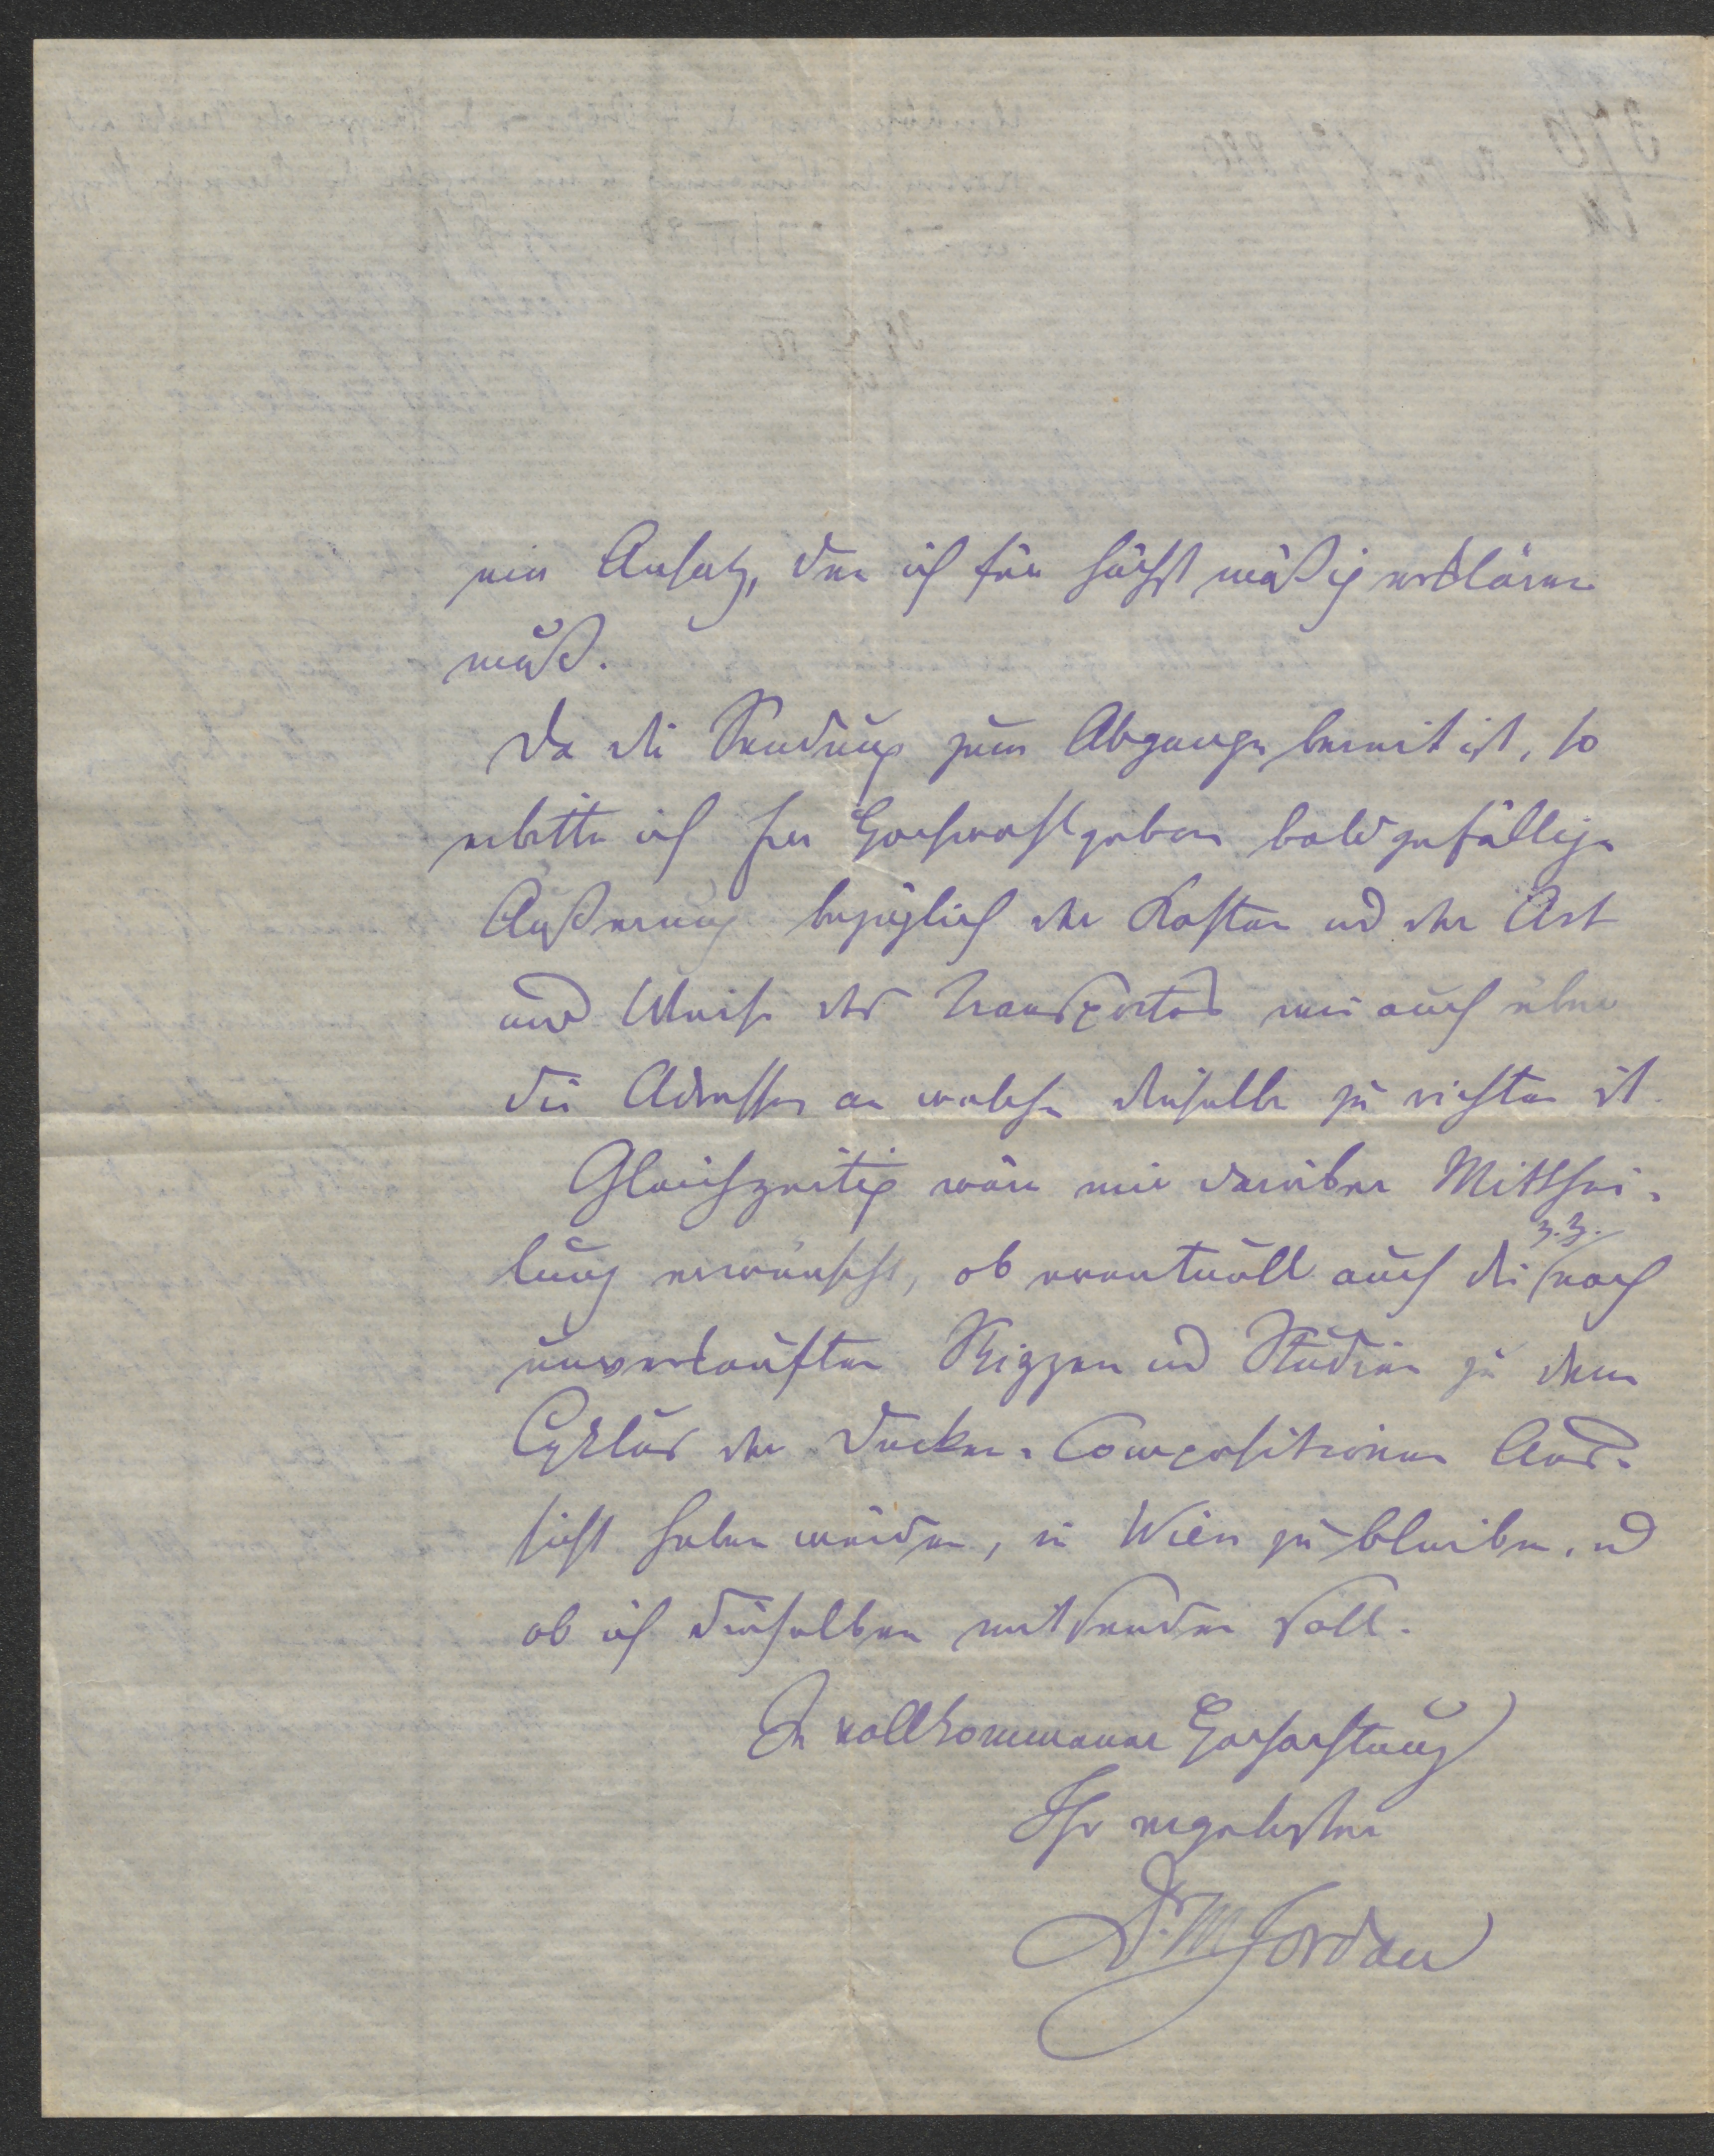 ein Ansatz, den ich für höchst mäßig erklären
muß.
Da die Sendung zum Abgange bereit ist, so
erbitte ich Euer Hochwohlgeboren bald gefällige
Äußerung bezüglich der Kosten und der Art
und Weise des Transportes wie auch über
die Adresse an welche dieselbe zu richten ist.
Gleichzeitig wäre mir darüber Mitthei-
lung erwünscht, ob eventuell auch die z.Z. noch
unverkauften Skizzen und Studien zu dem
Cyklus der Decken-Compositionen Aus-
sicht haben würden, in Wien zu bleiben, und
ob ich dieselben mitsenden soll.
In vollkommener Hochachtung
Ihr ergebenster
Dr. M Jordan